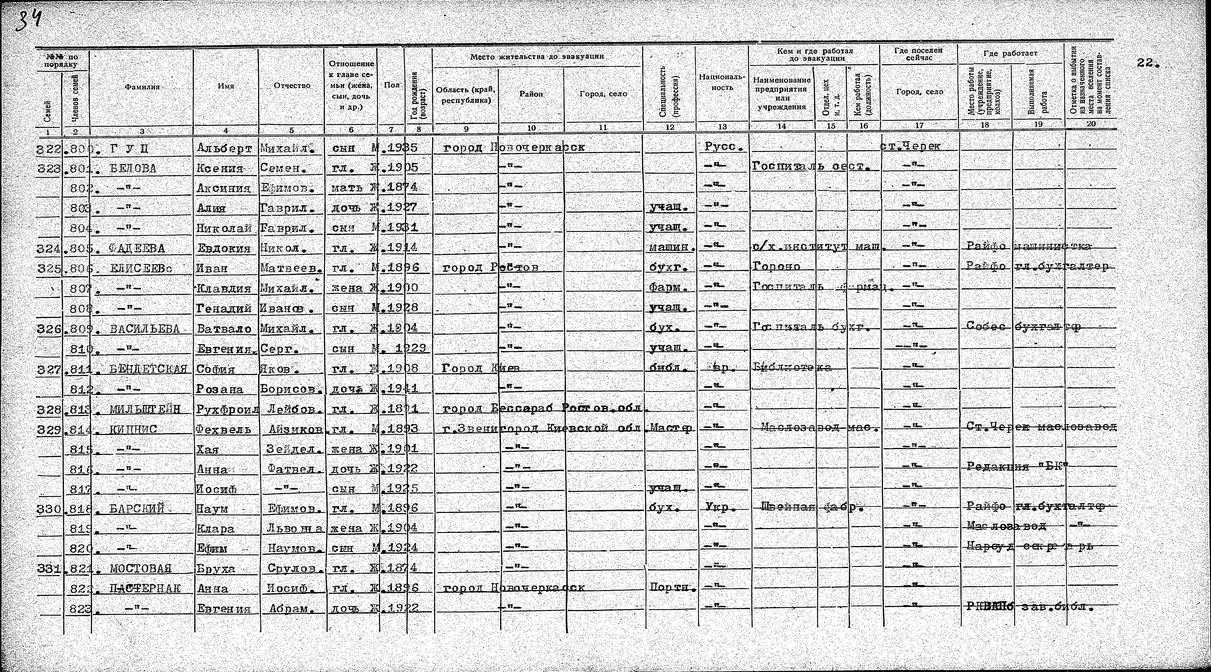 34
22.
№№ по порядку | Фамилия | Имя | Отчество | Отношение к главе семьи (жена, сын, дочь и др.) | Пол | Год рождения (возраст) | Место жительства до эвакуации | Специальность (профессия) | Национальность | Кем и где работал до эвакуации | Где поселен сейчас | Где работает | Отметка о выбытии из назначенного места вселения на момент составления списка
Семей | Членов семей | Область (край, республика) | Район | Город, село | Наименование предприятия или учреждения | Отдел, цех и т. д. | Кем работал (должность) | Город, село | Место работы (учреждение, предприятие, колхоз) | Выполняемая работа
1 2 3 4 5 6 7 8 9 10 11 12 13 14 15 16 17 18 19 20
322. 800. ГУЦ Альберт Михайл. сын М. 1935 город Новочеркасск Русс. ст.Черек
323. 801. БЕЛОВА Ксения Семен. гл. Ж. 1905 -"- -"- Госпиталь сест. -"-
802. -"- Аксиния Ефимов. мать Ж. 1874 -"- -"- -"-
803. -"- Алия Гаврил. дочь Ж. 1927 -"- учащ. -"- -"-
804. -"- Николай Гаврил. сын М. 1931 -"- учащ. -"- -"-
324. 805. ФАДЕЕВА Евдокия Никол. гл. Ж. 1914 -"- машин. -"- с/х.институт маш. -"- Райфо машинистка
325. 806. ЕЛИСЕЕВ Иван Матвеев. гл. М. 1896 город Ростов бухг. -"- Гороно -"- Райфо гл.бухгалтер
807. -"- Клавдия Михайл. жена Ж. 1900 -"- Фарм. -"- Госпиталь фармац. -"-
808. -"- Генадий Иванов. сын М. 1928 -"- учащ. -"- -"-
326. 809. ВАСИЛЬЕВА Ватвало Михайл. гл. Ж. 1904 -"- бух. -"- Госпиталь бухг. -"- Собес бухгалтер
810. -"- Евгения. Серг. сын М. 1929 -"- учащ. -"- -"-
327. 811. БЕНДЕТСКАЯ София Яков. гл. Ж. 1908 Город Киев библ. Библиотека -"-
812. -"- Розана Борисов. дочь Ж. 1941 -"- -"- -"-
328. 813. МИЛЬШТЕЙН Рухфроил Лейбов. гл. Ж. 1871 город Бессараб Ростов.обл. -"- -"-
329. 814. КИПНИС Фехвель Айзиков. гл. М. 1893 г.Звенигород Киевской обл. Мастер -"- Маслозавод мас. -"- Ст.Черек маслозавод
815. -"- Хая Зейдел. жена Ж. 1901 -"- -"- -"-
816. -"- Анна Фатвел. дочь Ж. 1922 -"- -"- -"- Редакция "БК"
817. -"- Иосиф -"- сын М. 1925 -"- учащ. -"- -"-
330. 818. БАРСКИЙ Наум Ефимов. гл. М. 1896 -"- бух. Укр. Швейная фабр. -"- Райфо гл.бухгалтер
819. -"- Клара Львовна жена Ж. 1904 -"- -"- -"- Маслозавод -"-
820. -"- Ефим Наумов. сын М. 1924 -"- -"- -"- Нарсуд секретарь
331. 821. МОСТОВАЯ Бруха Срулов. гл. Ж. 1874 -"- -"- -"-
822. ПАСТЕРНАК Анна Иосиф. гл. Ж. 1896 город Новочеркасск Портн. -"- -"-
823. -"- Евгения Абрам. дочь Ж. 1922 -"- -"- -"- зав.библ.